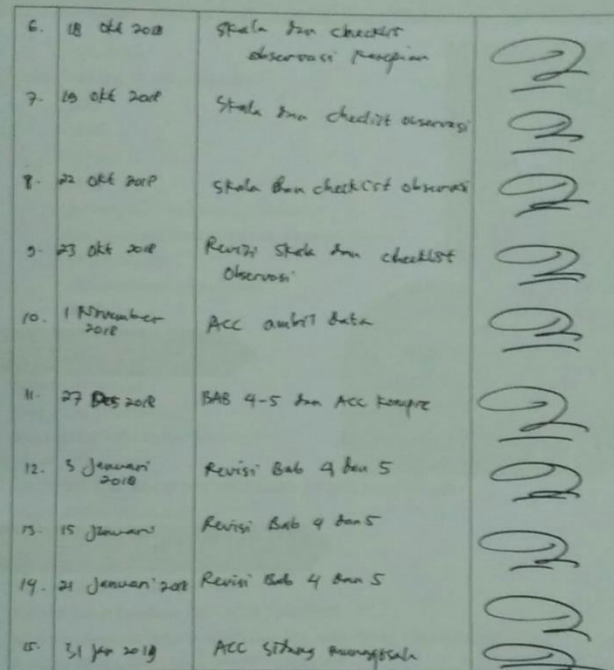 6. 18 Okt 2018 Skala dan checklist
observasi
7. 19 Okt 2018 Skala dan checklist observasi
8. 22 Okt 2018 Skala dan checklist observasi
9. 23 Okt 2018 Revisi Skala dan checklist
Observasi
10. 1 November ACC ambil data
2018
11. 27 Des 2018 BAB 4-5 dan ACC Kompre
12. 3 Januari Revisi Bab 4 dan 5
2018
13. 15 Januari Revisi Bab 4 dan 5
14. 21 Januari 2018 Revisi Bab 4 dan 5
15. 31 Jan 2019 ACC Sidang munaqosah